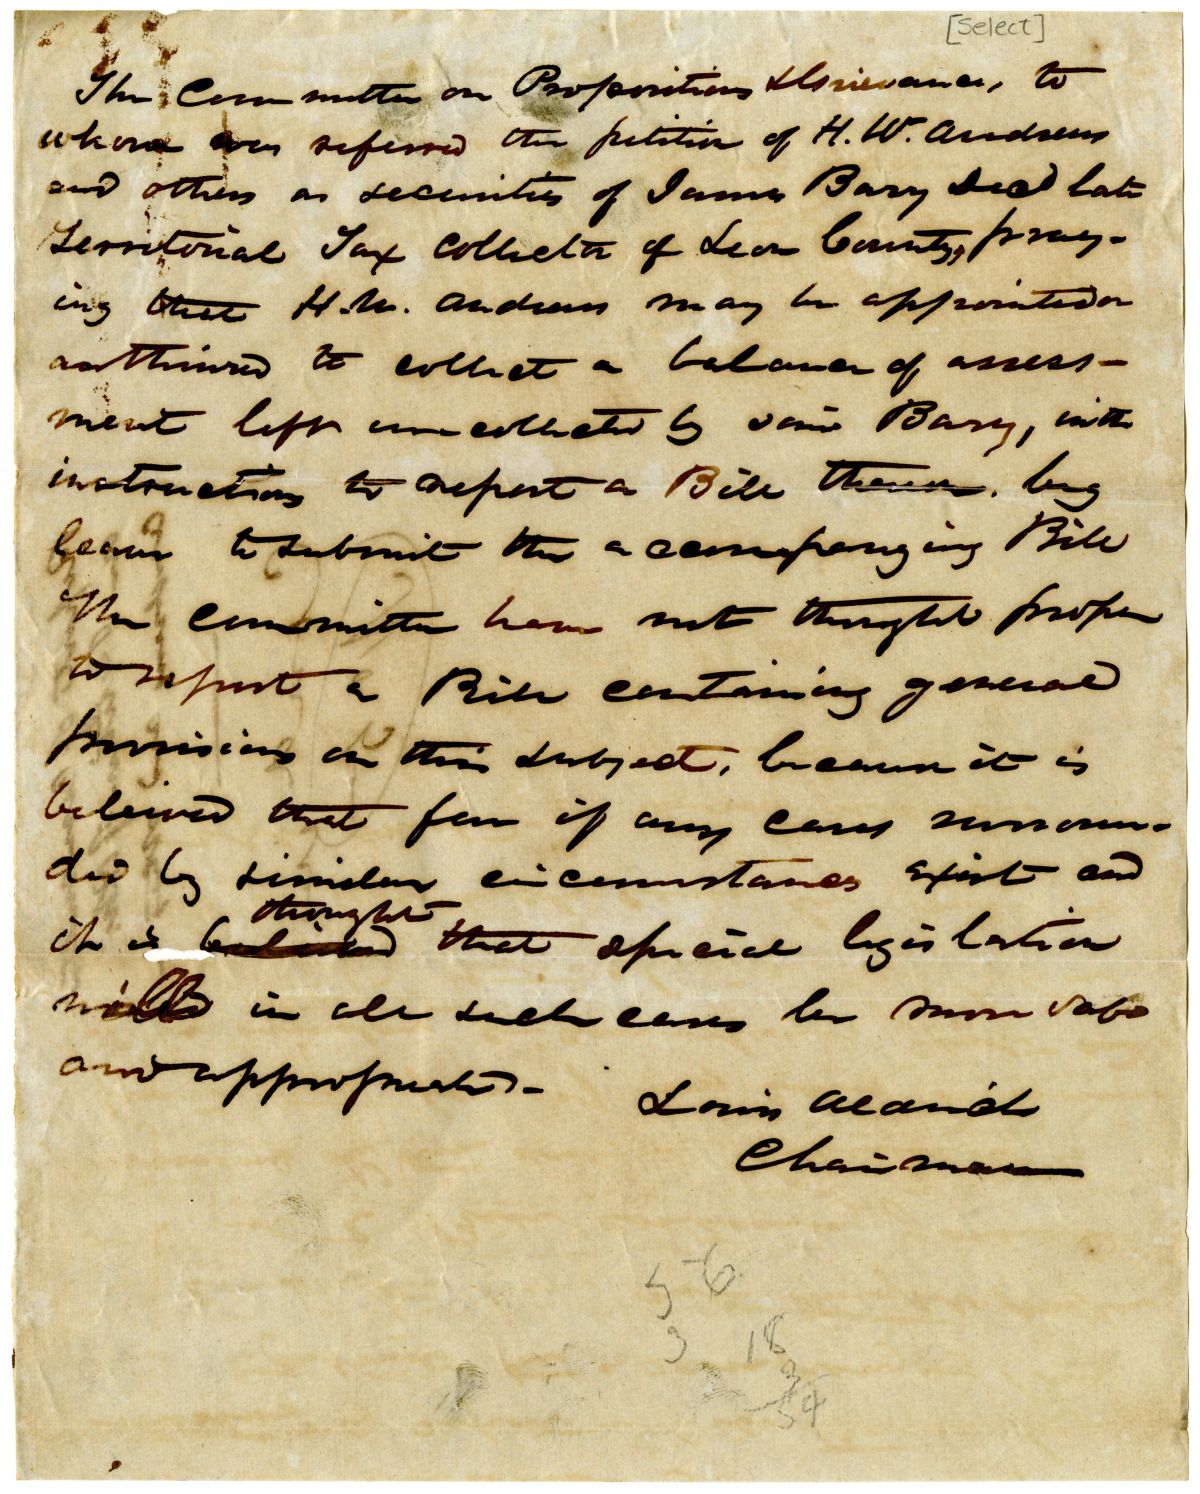 [Select]
The Committee on Propositions & Grievances, to
whom was referred the petition of H. W. Andrews
and others as securities of James Bary Decd late
Territorial Tax Collector of Leon County, pray-
ing that H. W. Andrews may be appointed or
authorised to collect a balance of assess-
ment left uncollected by said Bary, with
instructions to report a Bill thereon. beg
leave to submit the accompanying Bill
The committee have not thought proper
to report a Bill containing general
provisions on this subject, because it is
beleived that few if any cases surroun-
ded by similar circumstances exist and
thought
it is beleived that special legislation
will in all such cases be more safe
and appropriate.-
Louis Aldrich
Chairman
5 - 6
3 18
3
54